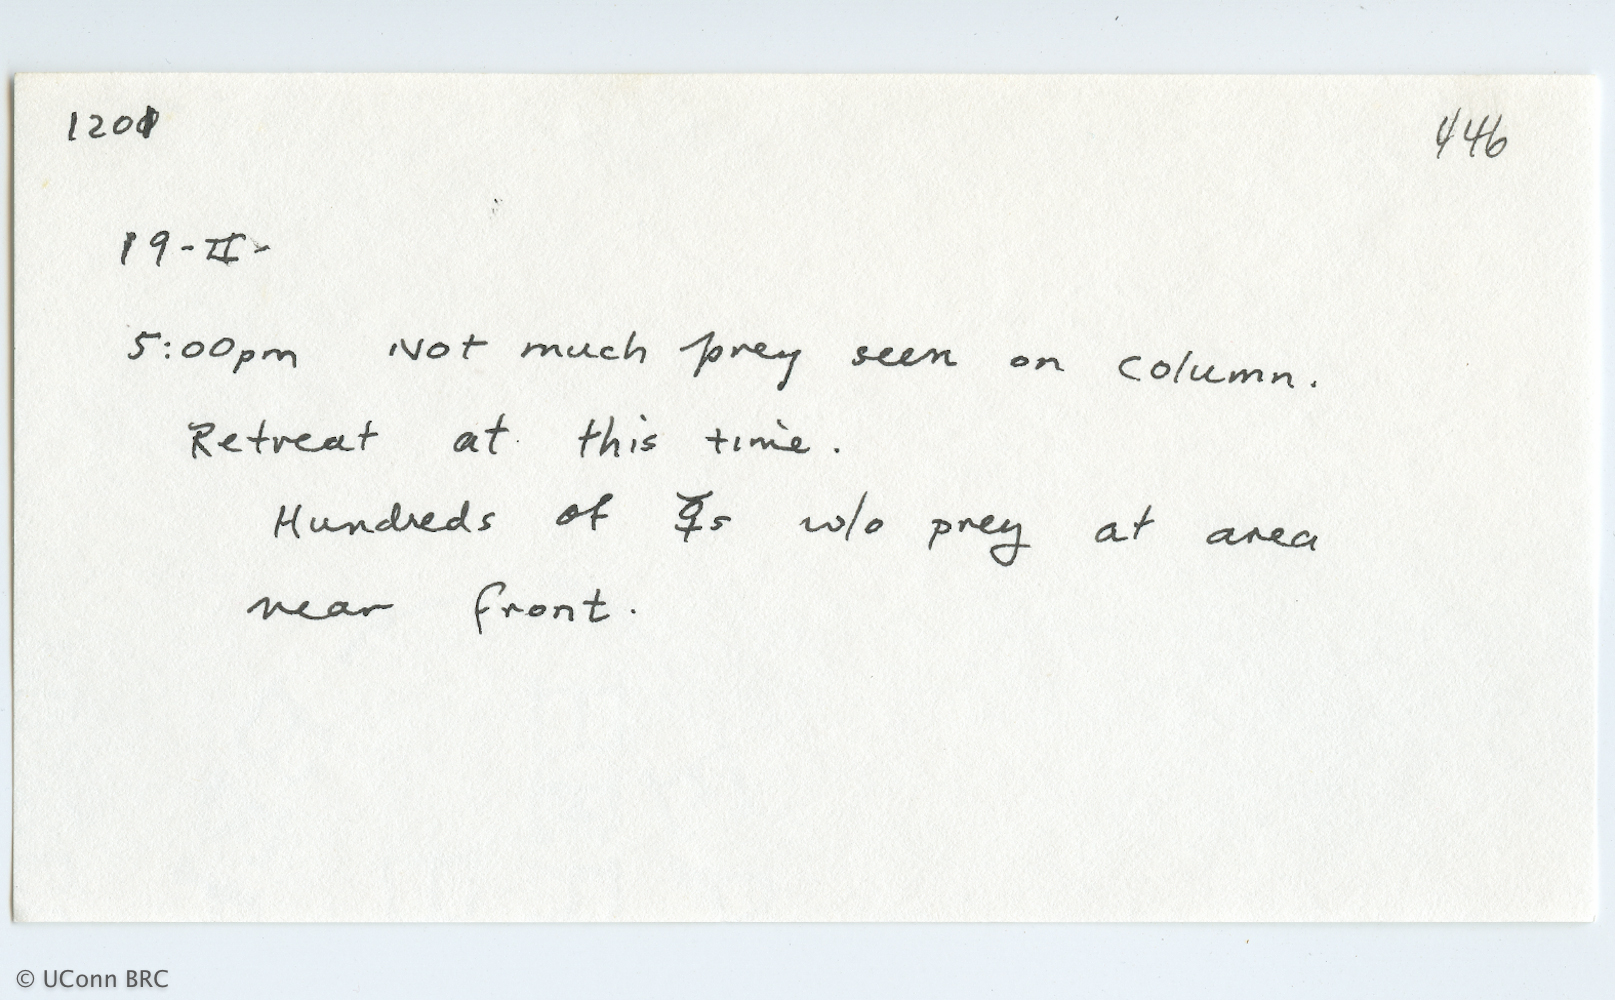 1201 446
19-II-
5:00pm Not much prey seen on column.
Retreat at this time.
Hundreds of ☿s w/o prey at area
near front.
© UConn BRC